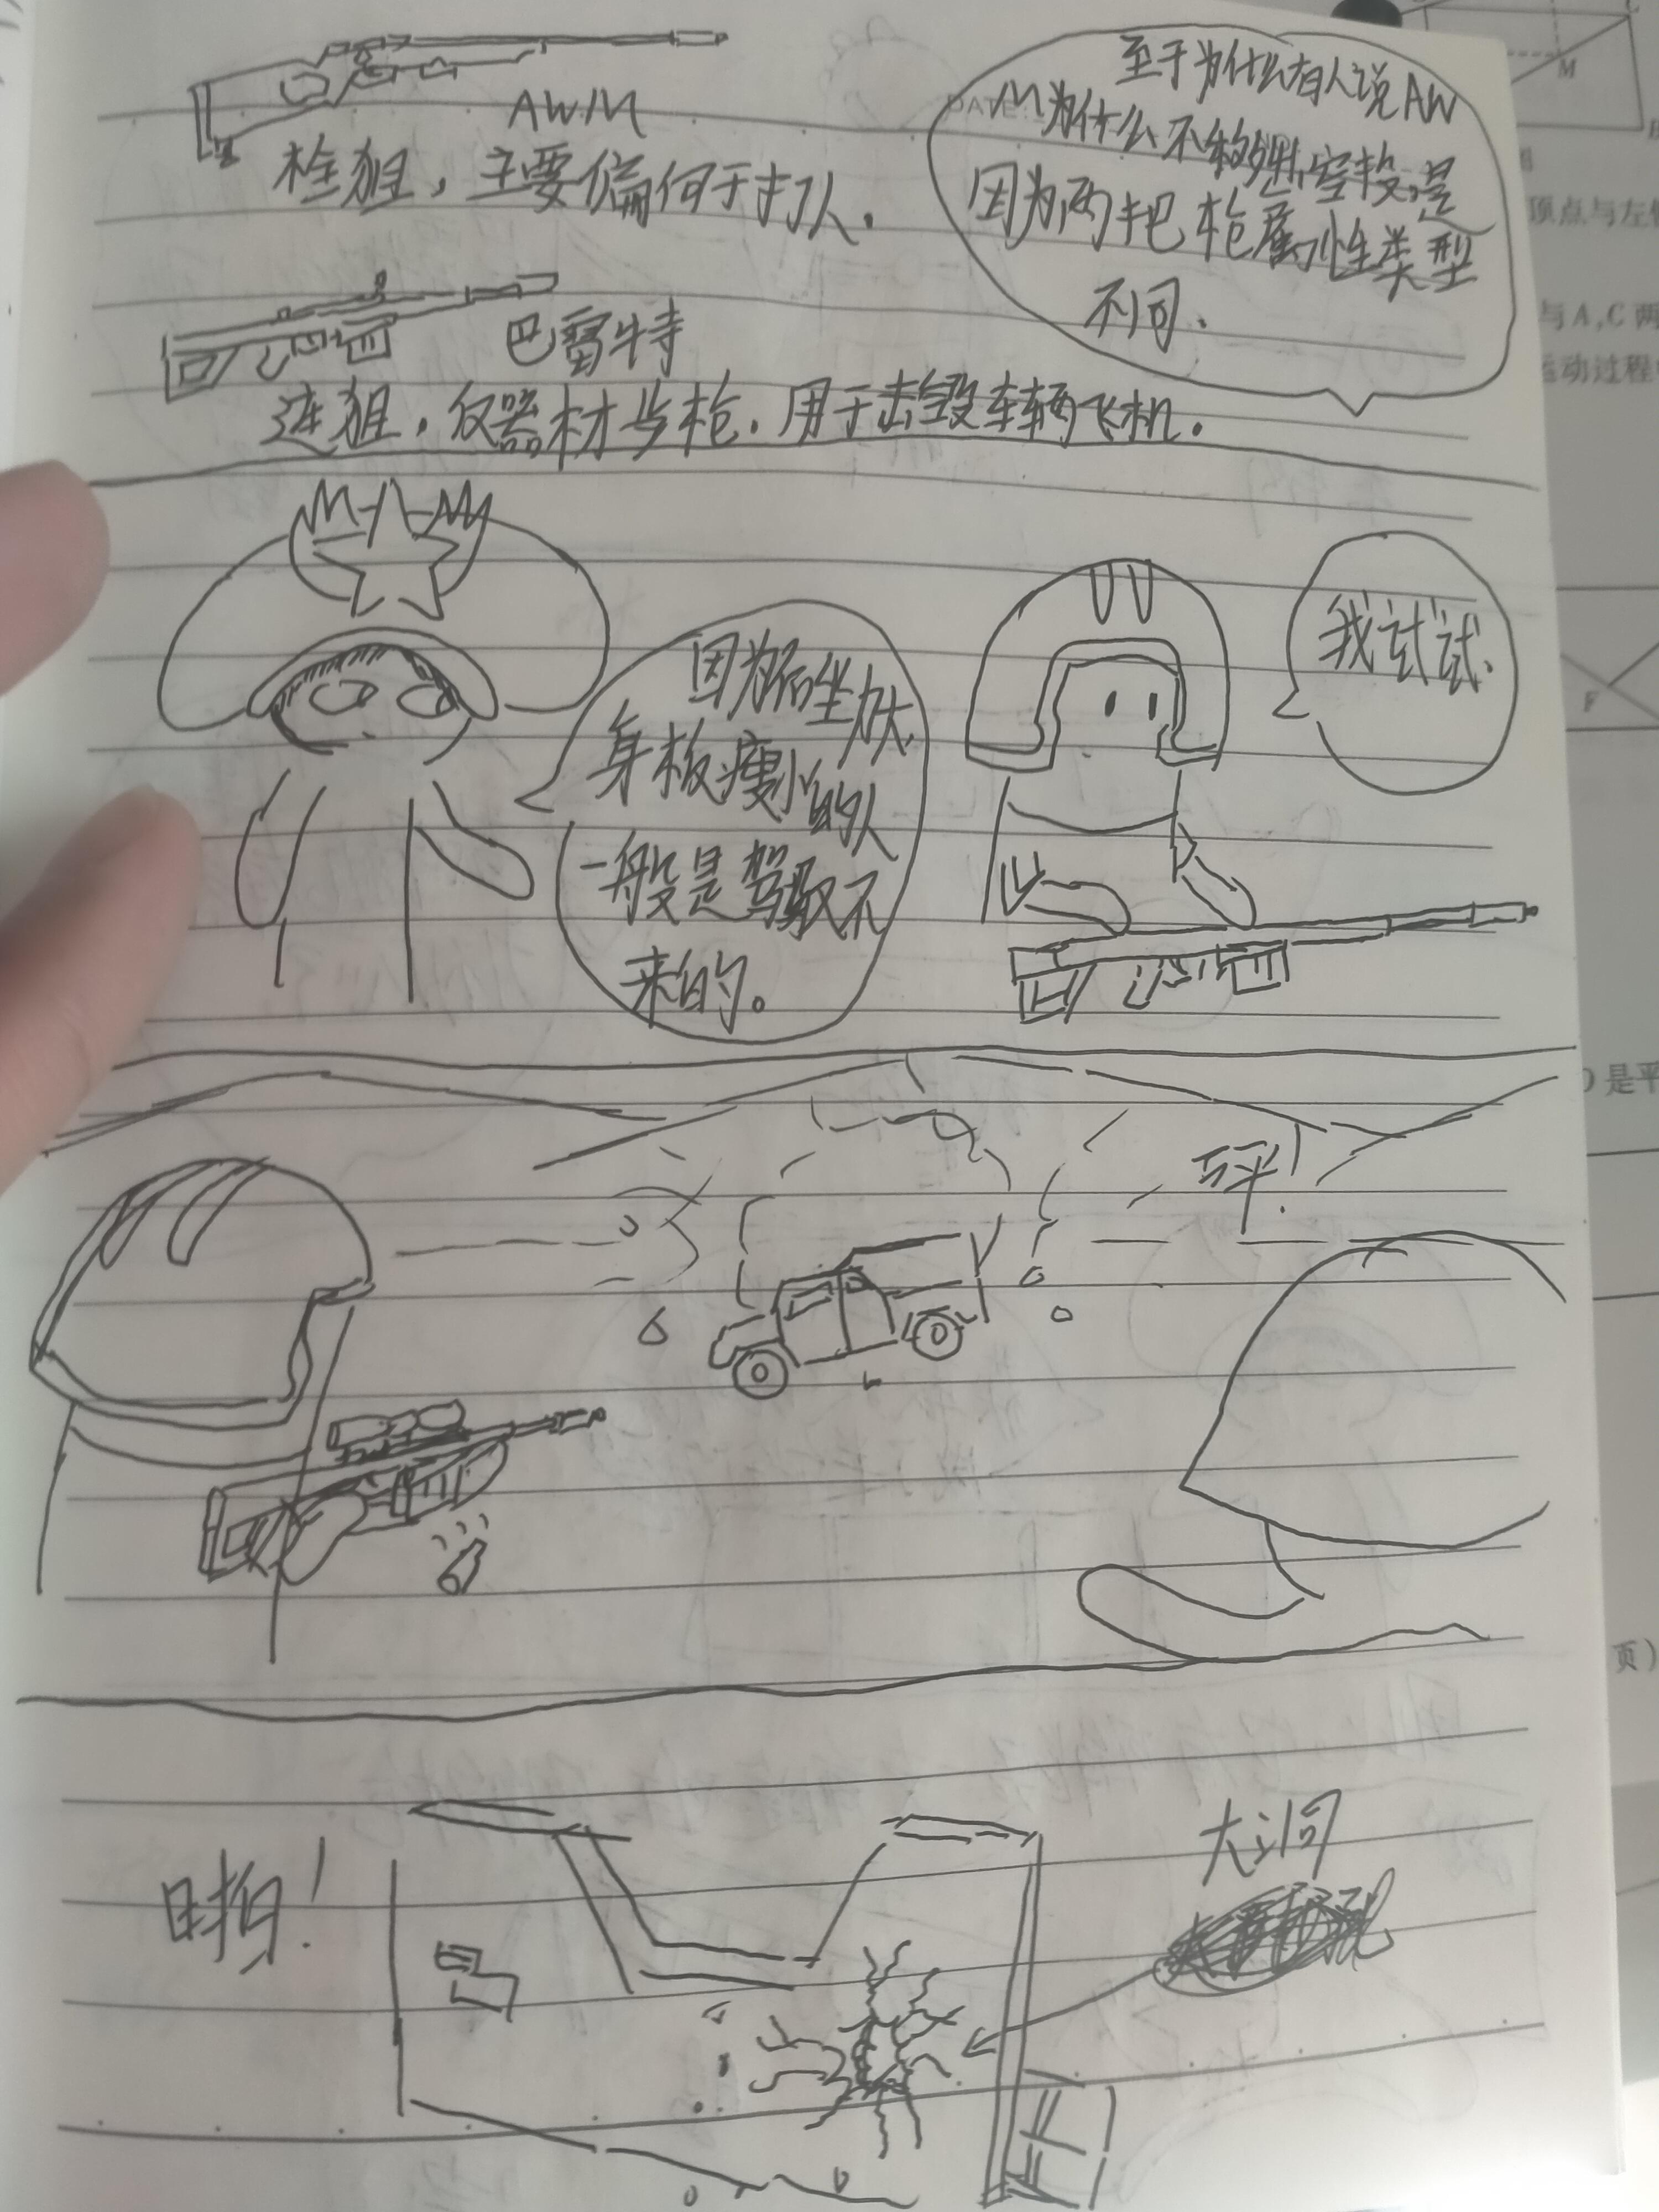 至于为什么有人说AW
M为什么不够进空投,是
因为两把枪属性类型
不同.
AWM
栓狙,主要偏何于打人.
巴雷特
连狙,反器材步枪.用于击毁车辆飞机.
因为后坐力大
身板瘦小的人
一般是驾驭不
来的。
我试试.
砰!
啪!
大洞
M
顶点与左
与A,C两
运动过程
F
是平
页)